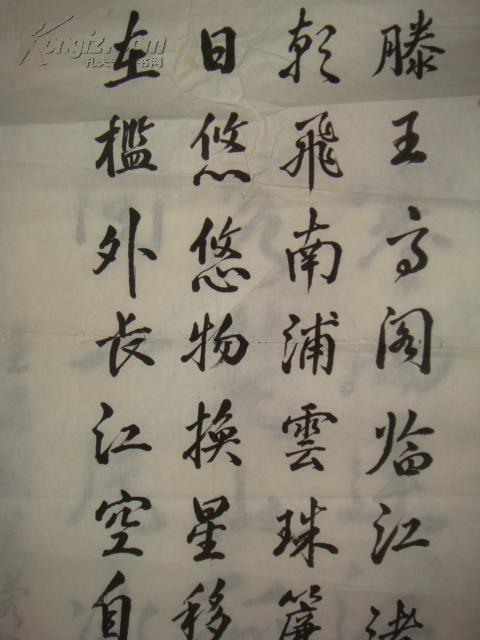 滕王高阁临江渚
朝飛南浦雲珠簾
日悠悠物換星移
在檻外長江空自
Kongfz.com